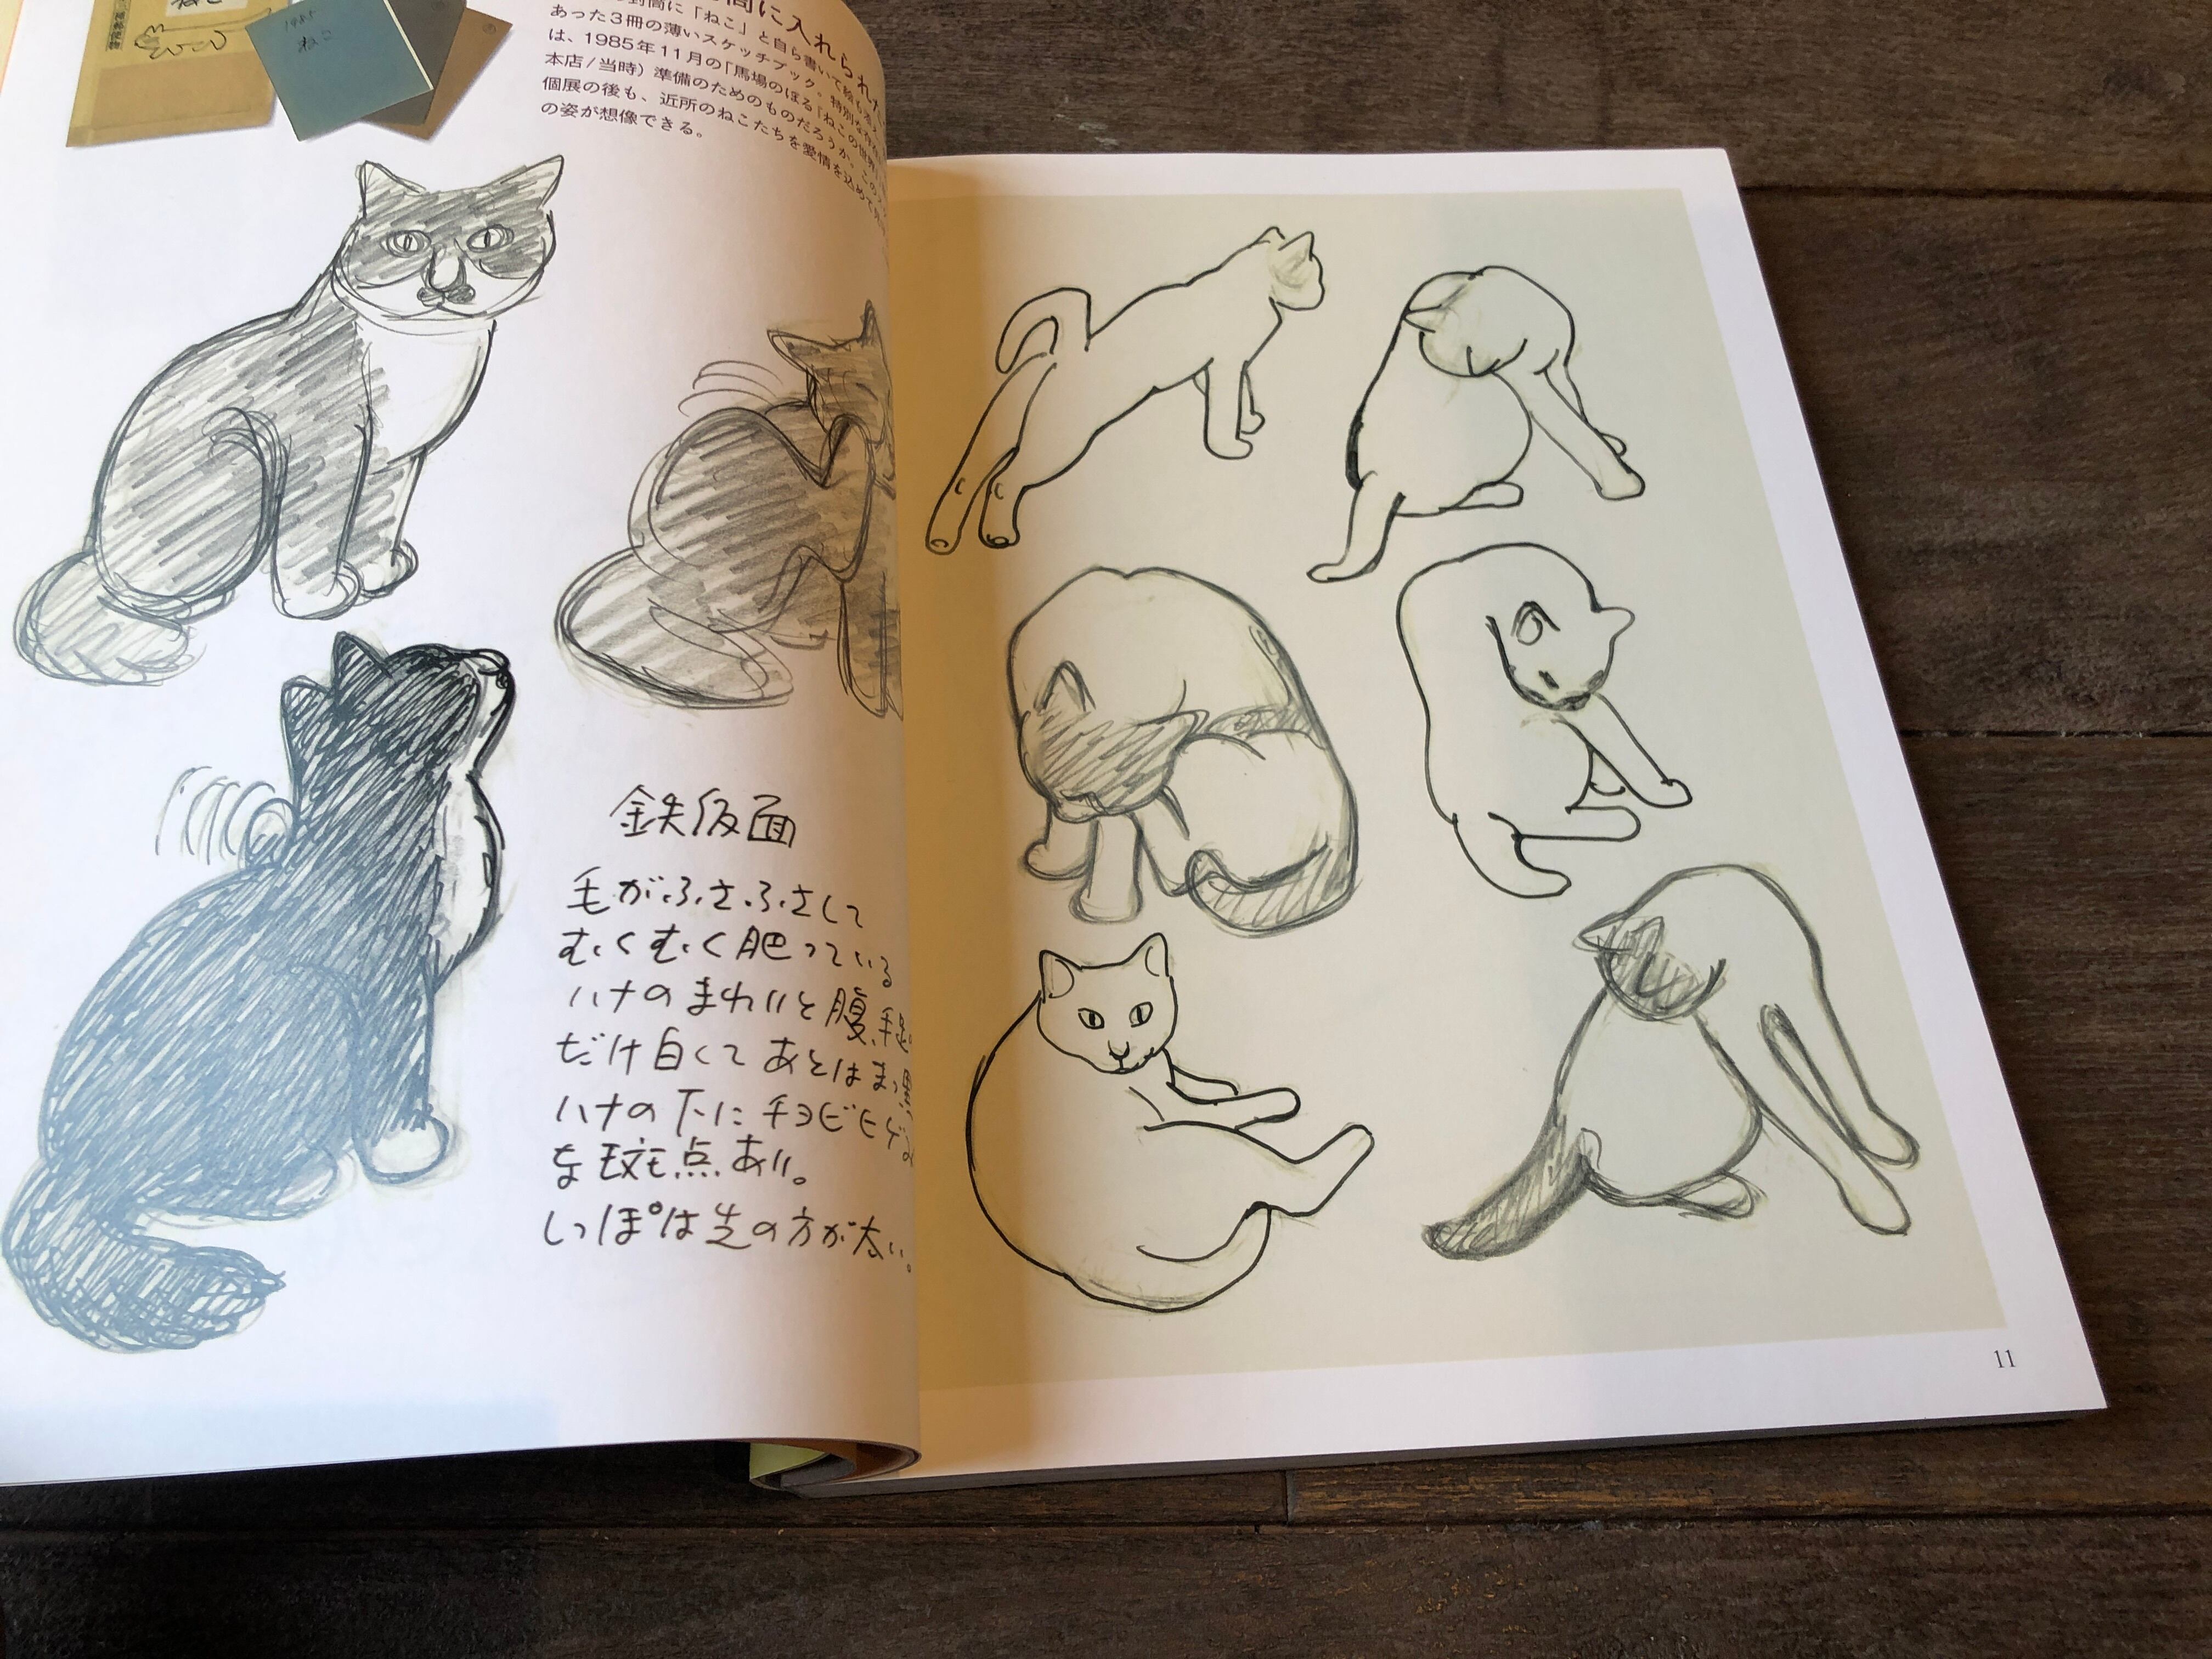 ねこ
1985
ねこ
間に入れられた
封筒に「ねこ」と自ら書いて絵も添え
あった3冊の薄いスケッチブック。特別な存在
は、1985年11月の「馬場のぼる「ねこの世界」
本店/当時）準備のためのものだろうか。この
個展の後も、近所のねこたちを愛情を込めて
の姿が想像できる。
鉄仮面
毛がふさふさして
むくむく肥っている
ハナのまわりと腹、手足
だけ白くてあとはまっ黒。
ハナの下にチョビヒゲ
な斑点あり。
しっぽは先の方が太い。
11